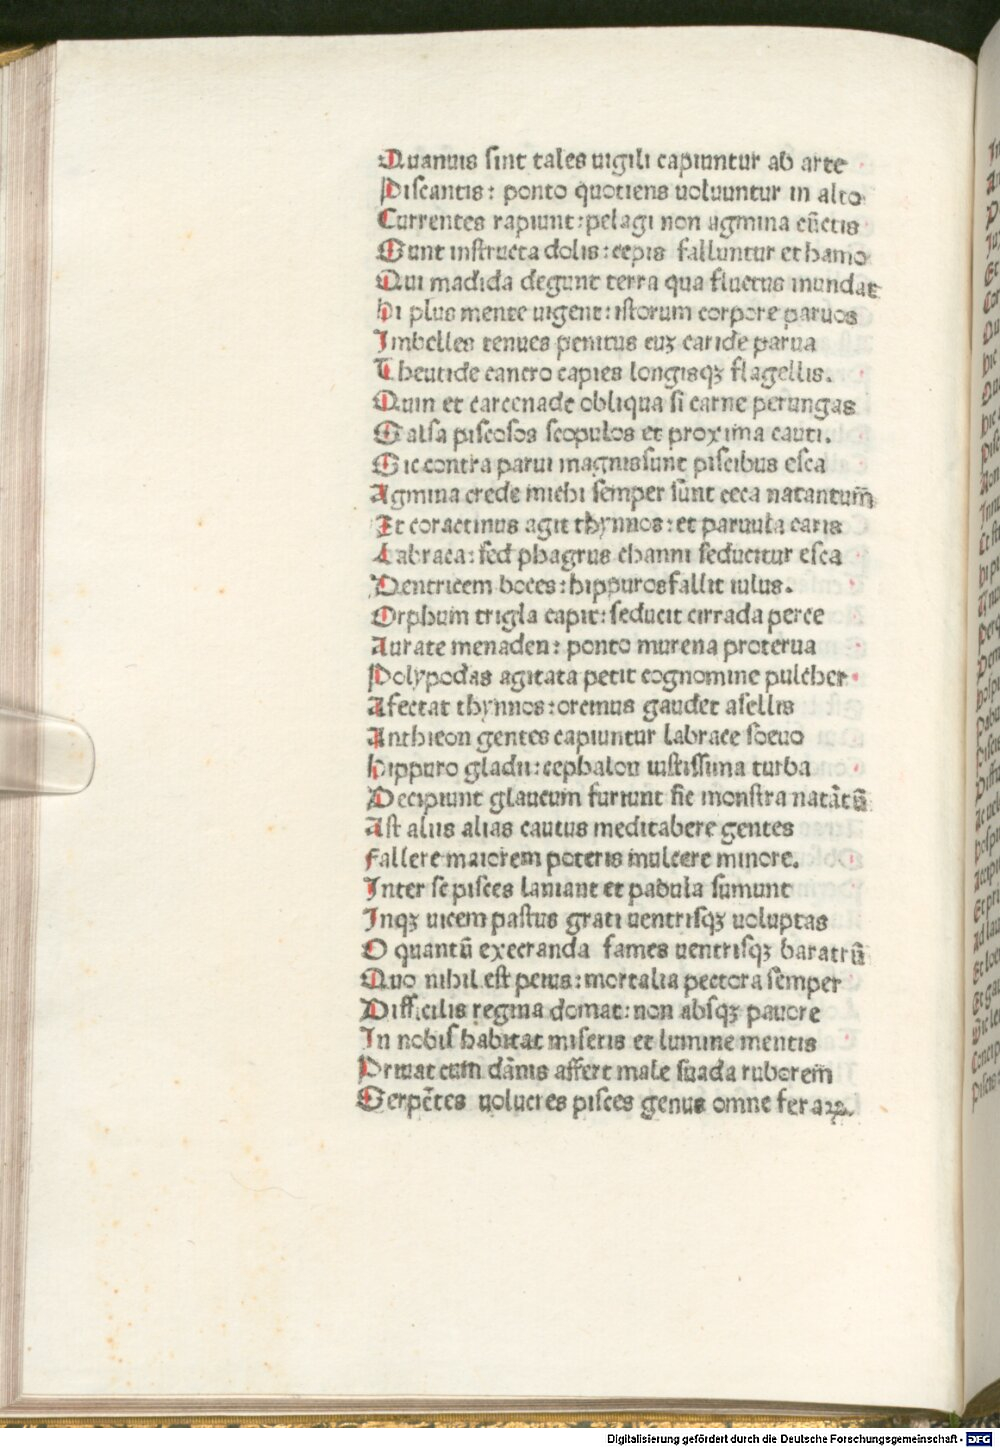 Quanuis sint tales uigili capiuntur ab arte
Piscantis: ponto quotiens uoluuntur in alto
Currentes rapiunt: pelagi non agmina cūctis
Sunt instructa dolis: cepis falluntur et hamo
Qui madida degunt terra qua fluctus inundat
Hi plus mente uigent: istorum corpore paruos
Imbelles tenues penitus cuꝫ caride parua
Theutide cancro capies longisqꝫ flagellis.
Quin et carcenade obliqua si carne perungas
Salsa piscosos scopulos et proxima cauti.
Sic contra parui magnis sunt piscibus esca
Agmina crede michi semper sunt ceca natantum
Et coracinus agit thynnos: et paruula caris
Labraca: sed phagrus channi seducitur esca
Dentricem boces: hippuros fallit iulus.
Orphum trigla capit: seducit cirrada perce
Aurate menaden: ponto murena proterua
Polypodas agitata petit cognomine pulcher
Afectat thynnos: oremus gaudet asellis
Anthieon gentes capiuntur labrace soeuo
Hippuro gladii: cephalou iustissima turba
Decipiunt glaucum furiunt sic monstra natātū
Ast aliis alias cautus meditabere gentes
Fallere maiorem poteris mulcere minore.
Inter se pisces laniant et pabula sumunt
Inqꝫ uicem pastus grati uentrisqꝫ uoluptas
O quantū execranda fames uentrisqꝫ baratrū
Quo nihil est peius: mortalia pectora semper
Difficilis regina domat: non absqꝫ pauore
In nobis habitat miseris et lumine mentis
Priuat cum dānis affert male suada ruborem
Serpētes uolucres pisces genus omne feraꝝ.
Digitalisierung gefördert durch die Deutsche Forschungsgemeinschaft - DFG